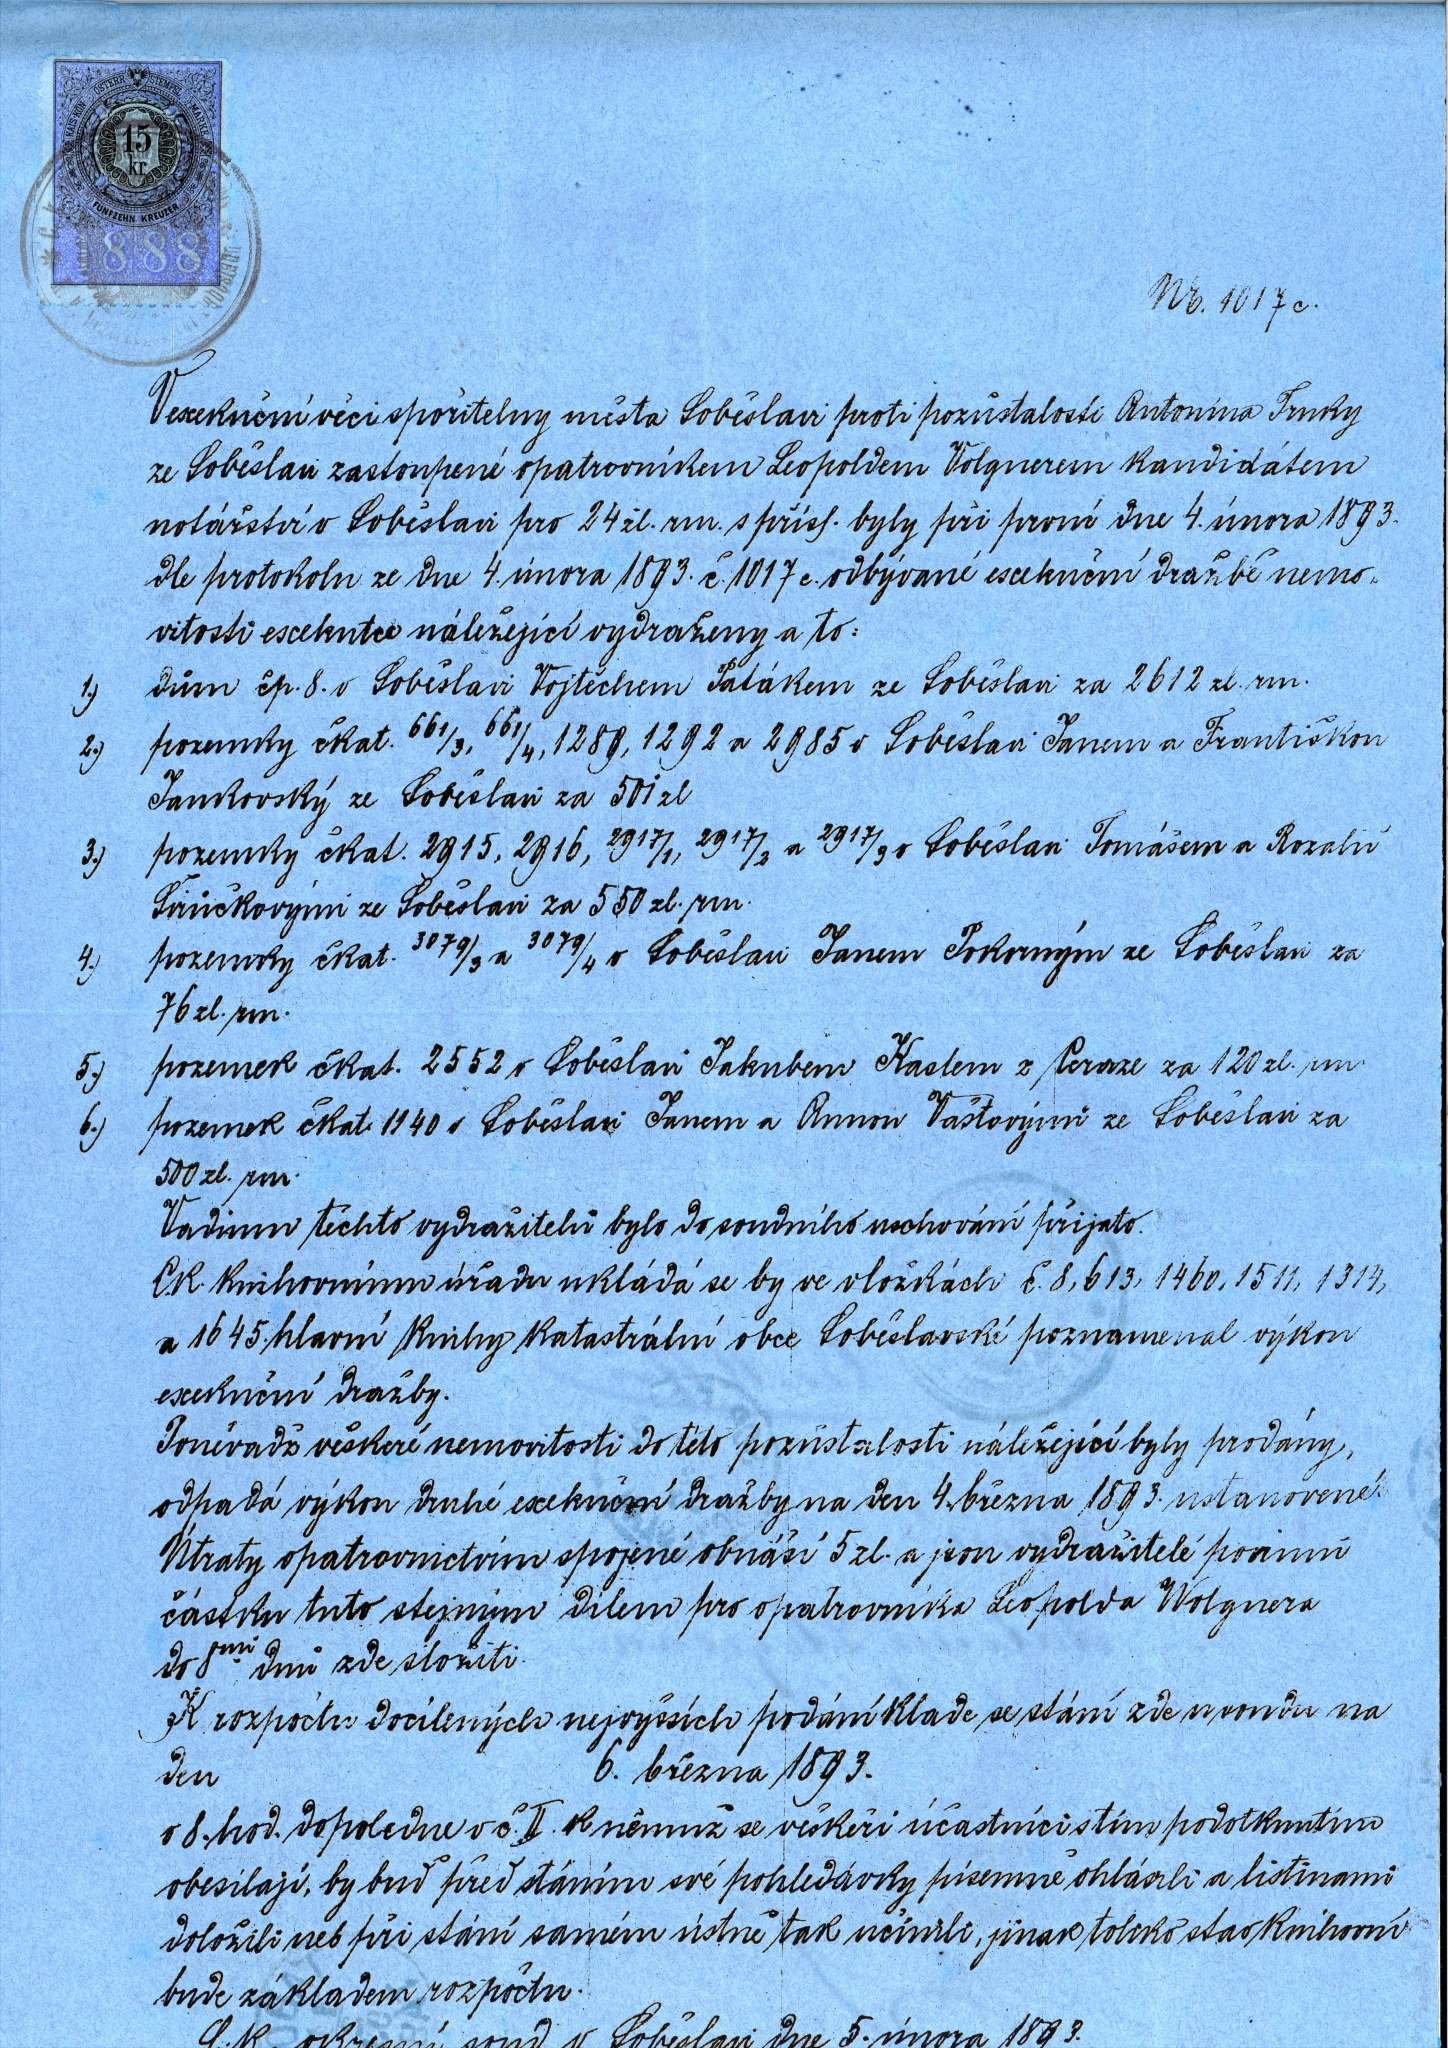 KAIS. KÖN. ÖSTERR. STEMPEL MARKE
15
kr.
FÜNFZEHN KREUZER
1888
Nr. 1017 c.
V exekuční věci spořitelny města Soběslavi proti pozůstalosti Antonína Trnky
ze Soběslavi zastoupené opatrovníkem Leopoldem Volgnerem kandidátem
notářství v Soběslavi pro 24 zl. rm. s přísl. byly při první dne 4. února 1893.
dle protokolu ze dne 4. února 1893. č. 1017 c. odbývané exekuční dražbě nemo-
vitosti exekutce náležející vydraženy a to:
1.) dům čp. 8. v Soběslavi Vojtěchem Patákem ze Soběslavi za 2612 zl. rm.
2.) pozemky čkat. 661/3, 661/4, 1289, 1292 a 2985 v Soběslavi Janem a Františkou
Jankovský ze Soběslavi za 501 zl
3.) pozemky čkat. 2915, 2916, 2917/1, 2917/2 a 2917/3 v Soběslavi Tomášem a Rozalií
Růžičkovými ze Soběslavi za 550 zl. rm.
4.) pozemky čkat. 3079/3 a 3079/4 v Soběslavi Janem Pokorným ze Soběslavi za
76 zl. rm.
5.) pozemek čkat. 2552 v Soběslavi Jakubem Kaslem z za 120 zl. rm
6.) pozemek čkat. 1140 v Soběslavi Janem a Annou Vaštovými ze Soběslavi za
500 zl. rm.
Vadium těchto vydražitelů bylo do soudního uschování přijato.
C.K. knihovnímu úřadu ukládá se by ve vložkách č. 8, 613, 1460, 1511, 1314,
a 1645. hlavní knihy katastrální obce Soběslavské poznamenal výkon
exekuční dražby.
Poněvadž veškeré nemovitosti do této pozůstalosti náležející byly prodány,
odpadá výkon druhé exekuční dražby na den 4. března 1893. ustanovené.
Útraty opatrovnictvím spojené obnáší 5 zl. a jsou vydražitelé povinni
částku tuto stejným dílem pro opatrovníka Leopolda Wolgnera
do 8mi dnů zde složiti.
K rozpočtu docílených nejvyšších podání klade se stání zde u soudu na
den 6. března 1893.
v 8. hod. dopoledne v č. II. k němuž se veškeří účastníci s tím podotknutím
obesílají, by buď před stáním své pohledávky písemně ohlásili a listinami
doložili neb při stání samém ústně tak učinili, jinak toliko stav knihovní
bude základem rozpočtu.
C.k. okresní soud v Soběslavi dne 5. února 1893.